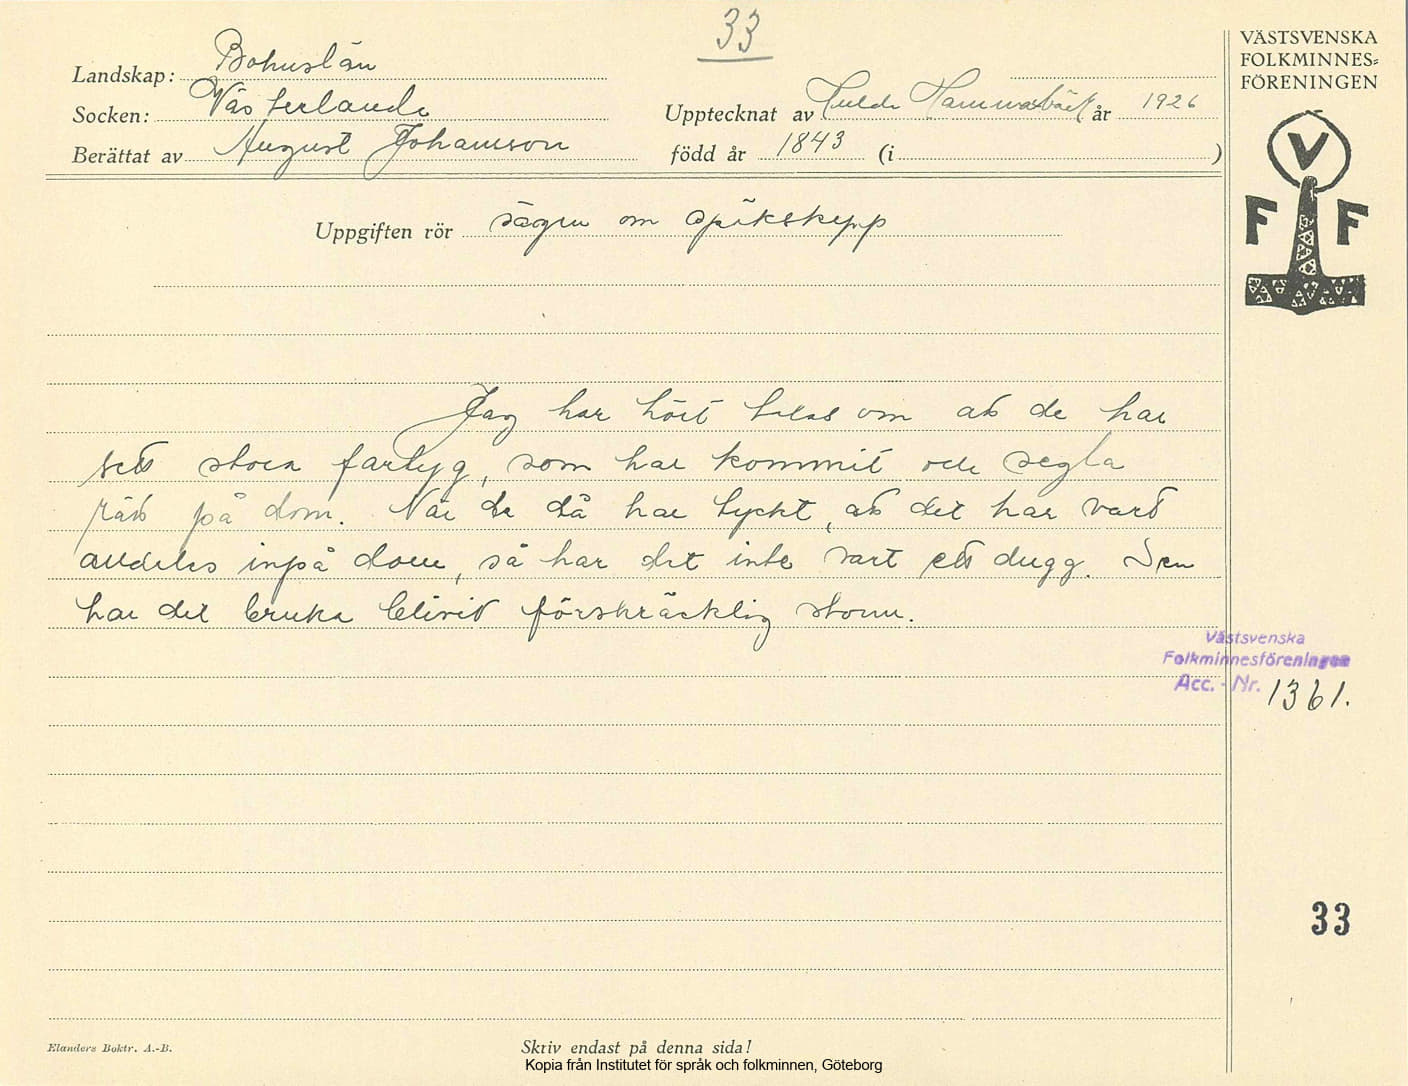 33
VÄSTSVENSKA
FOLKMINNES=
FÖRENINGEN
Landskap: Bohuslän
Socken: Västerlanda
Upptecknat av Hulda Hammarbäck år 1926
Berättat av August Johansson
född år 1843 (i )
V
F F
Uppgiften rör sägen om spökskepp
Jag har hört talas om att de har
sett stora fartyg, som har kommit och segla
rätt på dom. När de då har tyckt, att det har vart
alldeles inpå dom, så har det inte vart ett dugg. Sen
har det bruka blivit förskräcklig storm.
Västsvenska
Folkminnesföreningen
Acc. - Nr. 1361.
33
Elanders Boktr. A.-B.
Skriv endast på denna sida!
Kopia från Institutet för språk och folkminnen, Göteborg